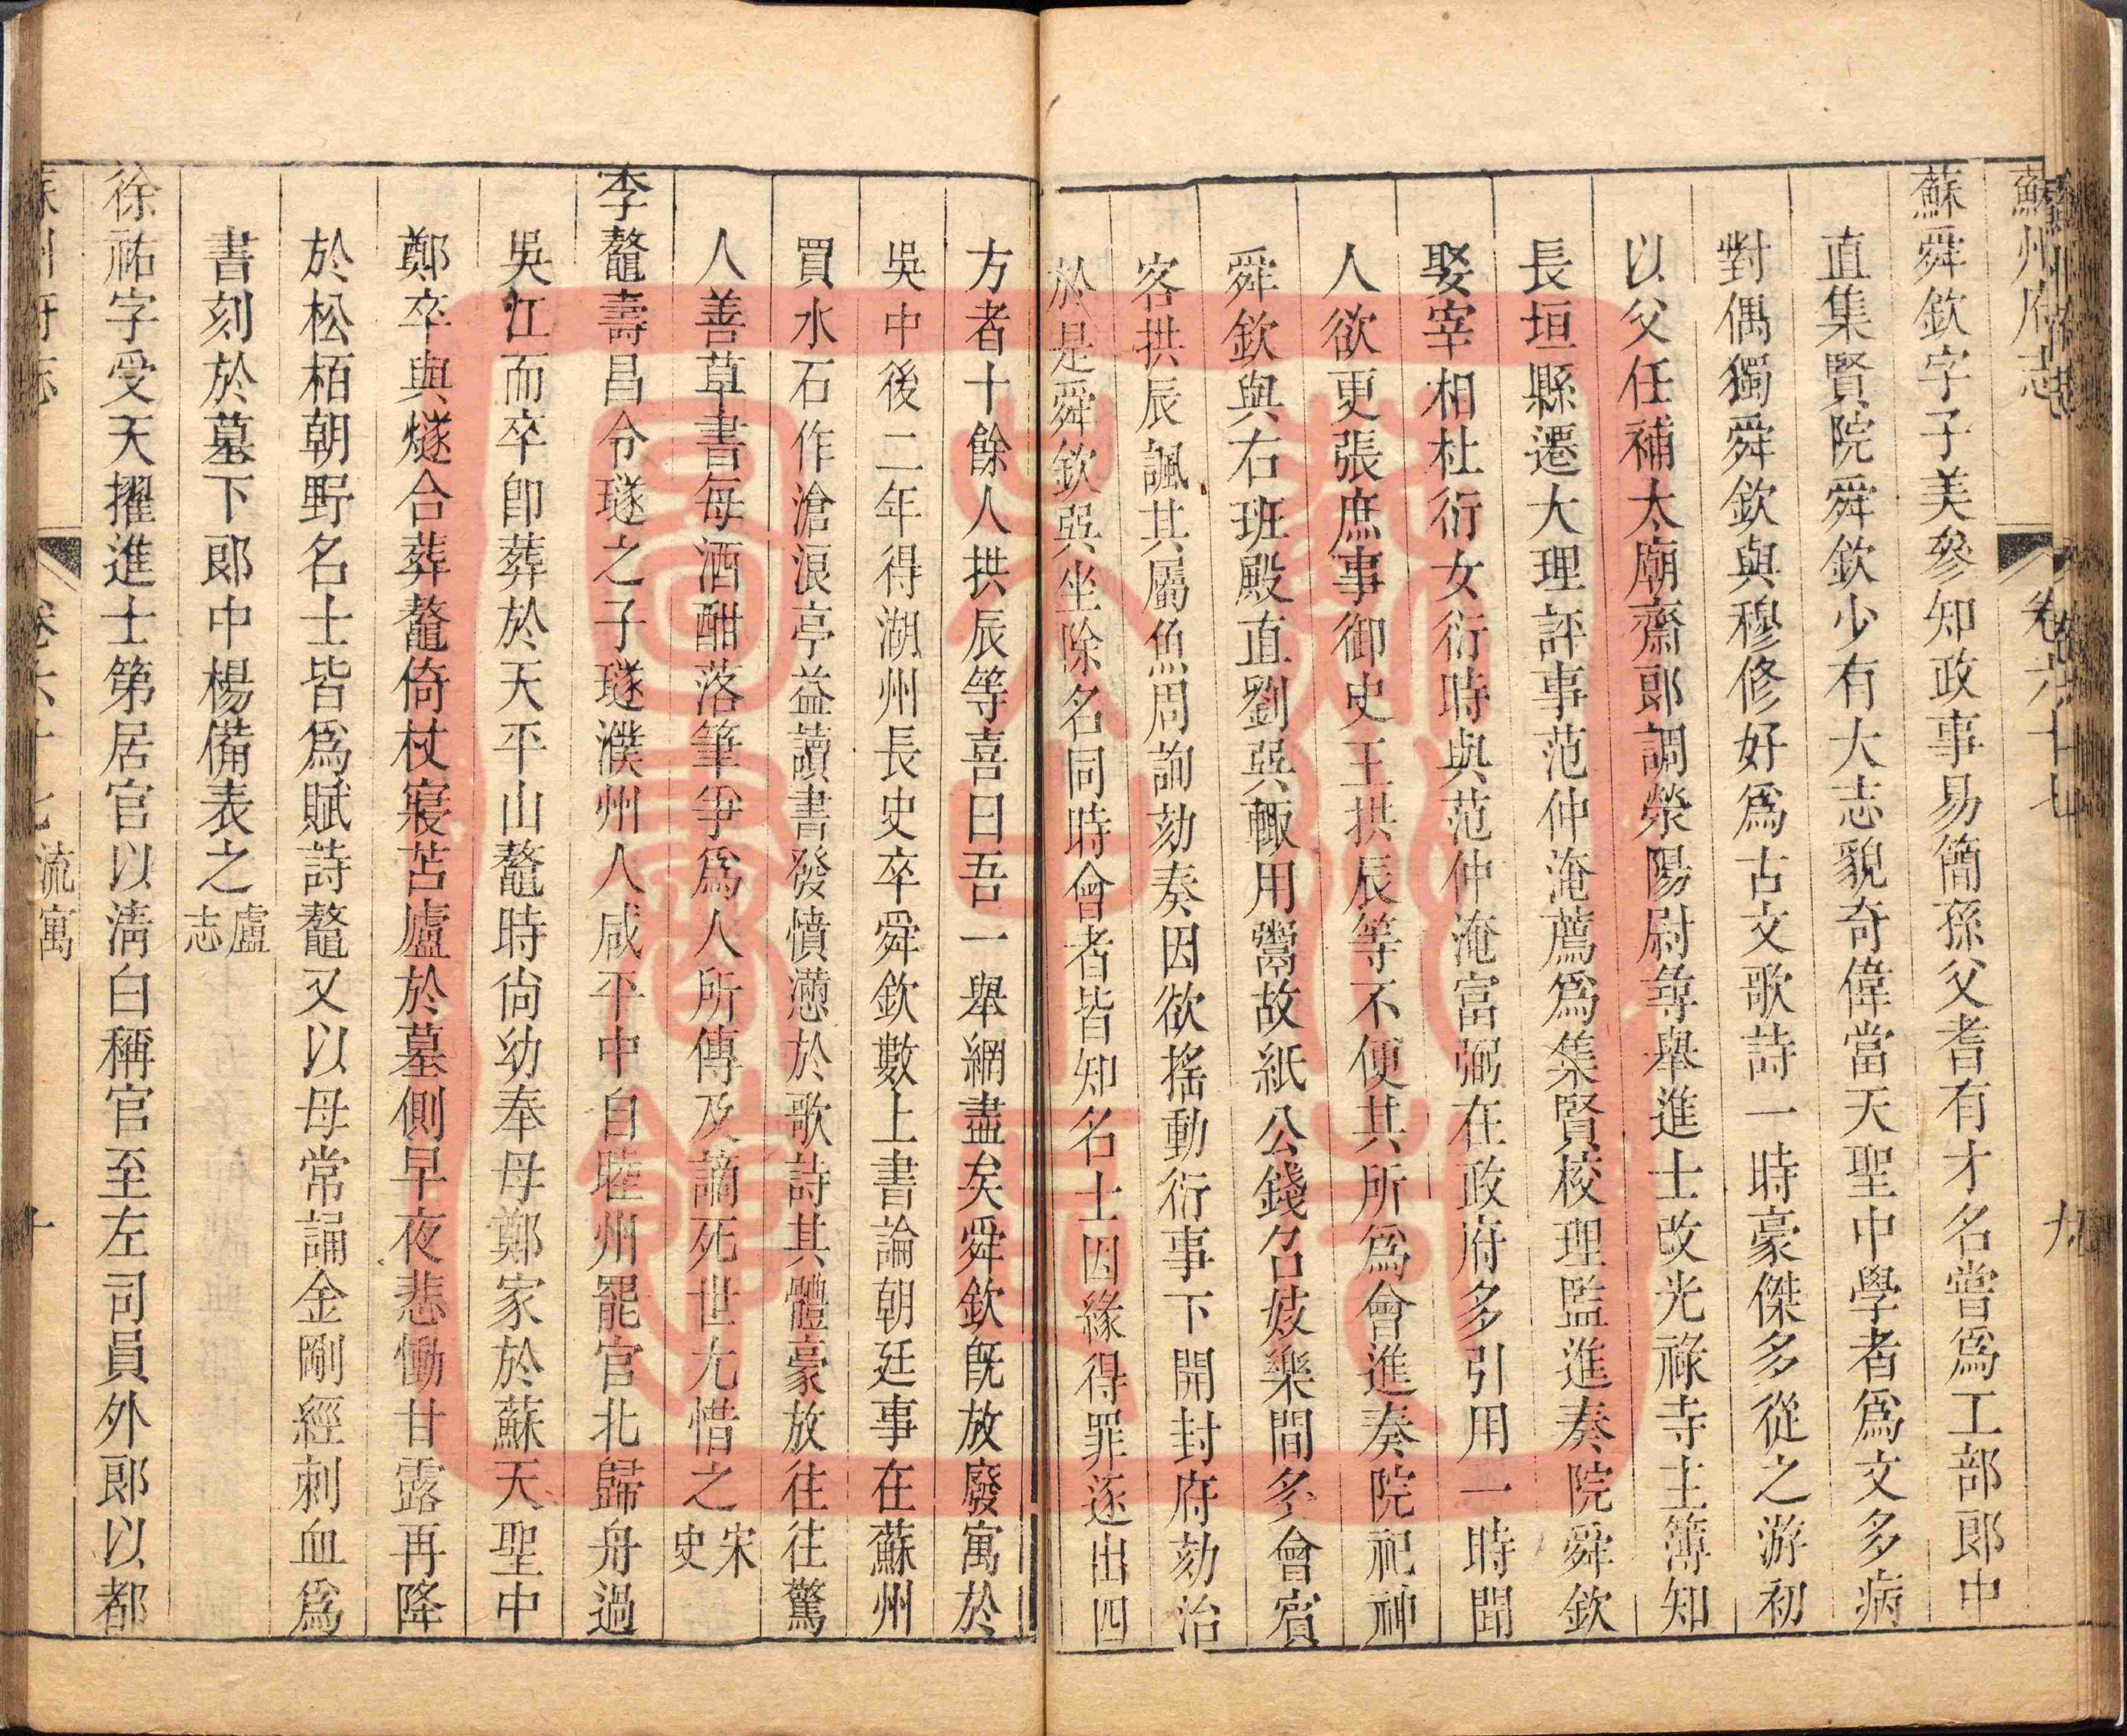 蘇州府志 卷六十七 九
蘇舜欽字子美參知政事易簡孫父耆有才名嘗爲工部郎中
直集賢院舜欽少有大志貌奇偉當天聖中學者爲文多病
對偶獨舜欽與穆修好爲古文歌詩一時豪傑多從之游初
以父任補太廟齋郎調滎陽尉尋舉進士改光祿寺主簿知
長垣縣遷大理評事范仲淹薦爲集賢校理監進奏院舜欽
娶宰相杜衍女衍時與范仲淹富弼在政府多引用一時聞
人欲更張庶事御史王拱辰等不便其所爲會進奏院祀神
舜欽與右班殿直劉巽輒用鬻故紙公錢召妓樂間多會賓
客拱辰諷其屬魚周詢劾奏因欲搖動衍事下開封府劾治
於是舜欽巽坐除名同時會者皆知名士因緣得罪逐出四
方者十餘人拱辰等喜曰吾一舉網盡矣舜欽旣放廢寓於
吳中後二年得湖州長史卒舜欽數上書論朝廷事在蘇州
買水石作滄浪亭益讀書發憤懣於歌詩其體豪放往往驚
人善草書每酒酣落筆爭爲人所傳及謫死世尢惜之宋史
李鼇壽昌令璲之子璲濮州人咸平中自睦州罷官北歸舟過
吳江而卒卽葬於天平山鼇時尙幼奉母鄭家於蘇天聖中
鄭卒與燧合葬鼇倚杖寢苫廬於墓側早夜悲慟甘露再降
於松栢朝野名士皆爲賦詩鼇又以母常誦金剛經刺血爲
書刻於墓下郎中楊備表之盧志
徐祐字受天擢進士第居官以淸白稱官至左司員外郎以都
蘇州府志 卷六十七 流寓 十
蘇州大學圖書館藏